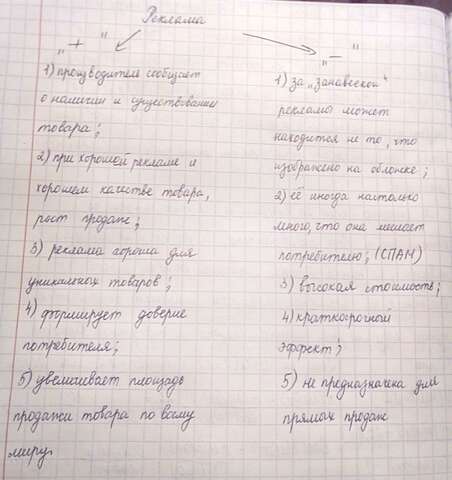 Реклама
„ + “
1) производитель сообщает
о наличии и существовании
товара;
2) при хорошей рекламе и
хорошем качестве товара,
рост продаж;
3) реклама хороша для
уникальных товаров;
4) формирует доверие
потребителя;
5) увеличивает площадь
продажи товара по всему
миру.
„ — “
1) за „занавеской“
рекламы может
находится не то, что
изображено на обложке;
2) её иногда настолько
много, что она мешает
потребителю; (СПАМ)
3) высокая стоимость;
4) краткосрочный
эффект;
5) не предназначена для
прямых продаж